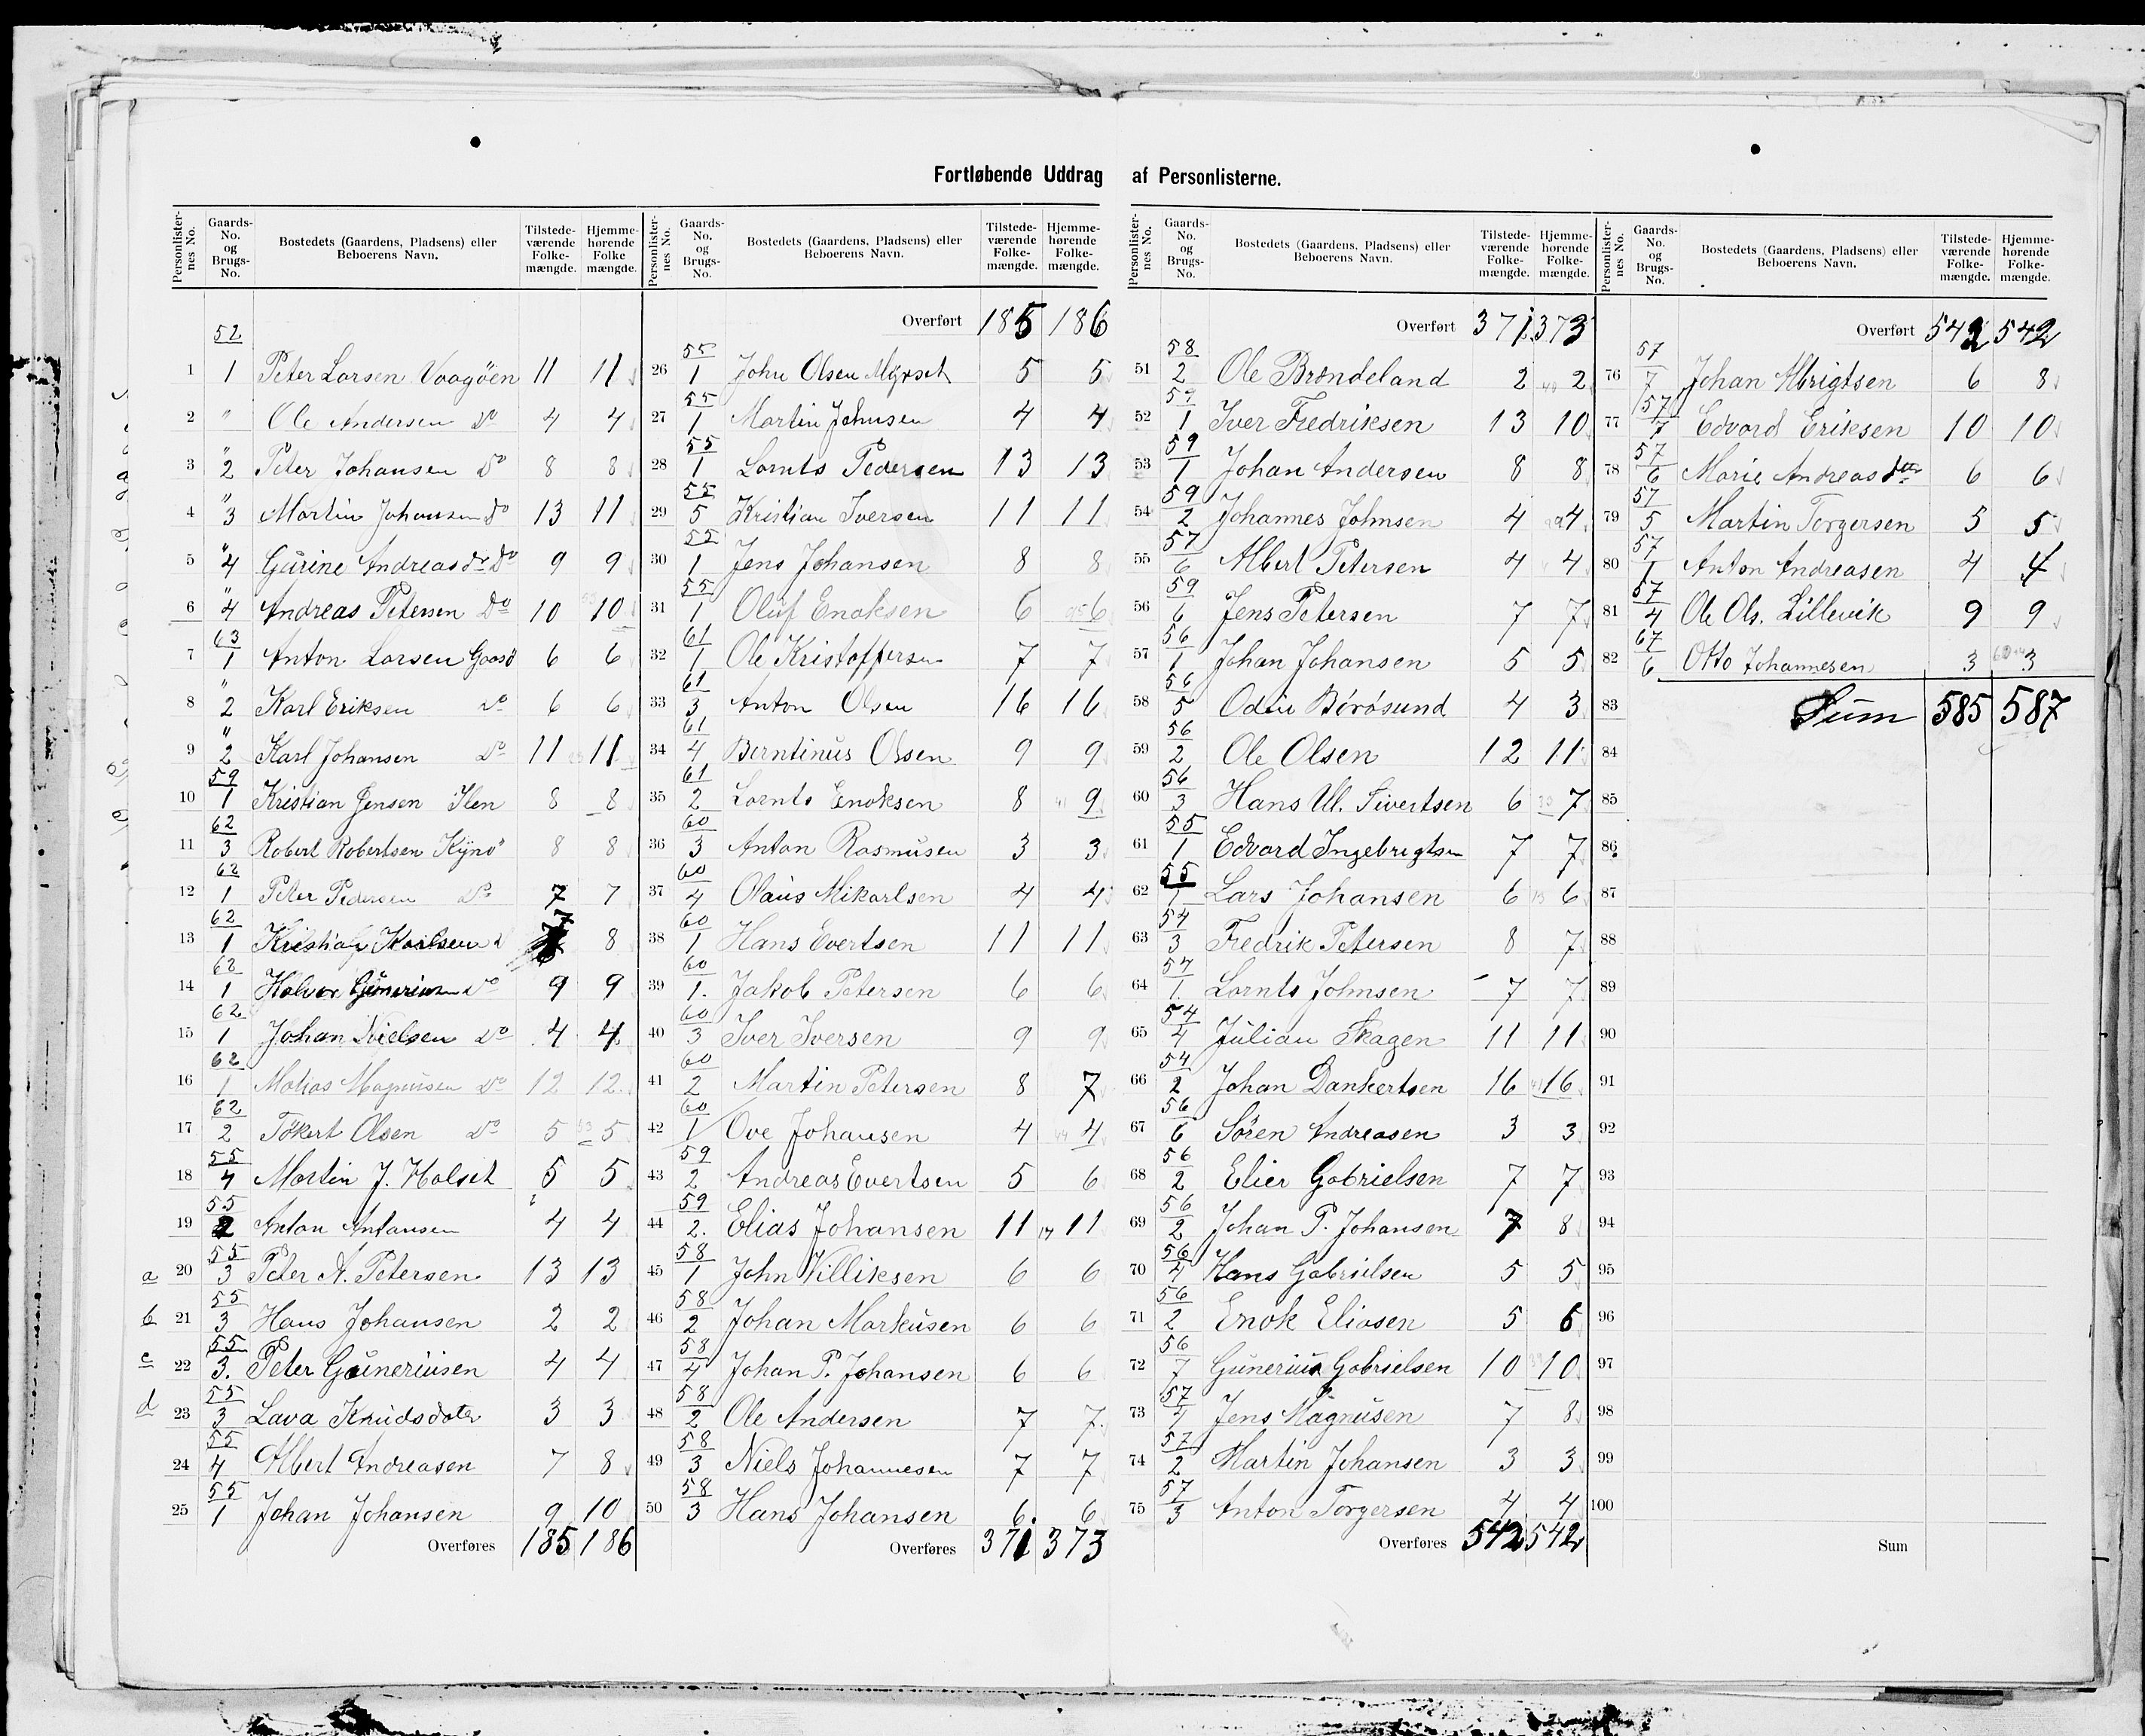 Fortløbende Uddrag af Personlisterne.
Personlisternes No. Gaards-No. og Brugs-No. Bostedets (Gaardens, Pladsens) eller Beboerens Navn. Tilstedeværende Folkemængde. Hjemmehørende Folkemængde.
1 52/1 Peter Larsen Vaagöen 11 11
2 " Ole Andersen Do 4 4
3 "/2 Peter Johansen Do 8 8
4 "/3 Martin Johansen Do 13 11
5 "/4 Gurine Andreasdr Do 9 9
6 "/4 Andreas Petersen Do 10 10
7 63/1 Anton Larsen Gaasö 6 6
8 "/2 Karl Eriksen Do 6 6
9 "/2 Karl Johansen Do 11 11
10 59/1 Kristian Jensen Ilen 8 8
11 62/3 Robert Robertsen Kjynö 8 8
12 62/1 Peter Pedersen Do 7 7
13 62/1 Kristian Karlsen 7 8
14 62/1 Halvor Gunerius Do 9 9
15 62/1 Johan Nielsen Do 4 4
16 62/1 Matias Magnusen Do 12 12
17 62/2 Tökert Olsen Do 5 5
18 55/4 Martin J. Halset 5 5
19 55/2 Anton Antonsen 4 4
a 20 55/3 Peter A. Petersen 13 13
b 21 55/3 Hans Johansen 2 2
c 22 55/3. Peter Guneriusen 4 4
d 23 55/3 Lava Knudsdoter 3 3
24 55/4 Albert Andreasen 7 8
25 55/1 Johan Johansen 9 10
Overføres 185 186
Personlisternes No. Gaards-No. og Brugs-No. Bostedets (Gaardens, Pladsens) eller Beboerens Navn. Tilstedeværende Folkemængde. Hjemmehørende Folkemængde.
Overført 185 186
26 55/1 John Olsen Myrset 5 5
27 55/1 Martin Johnsen 4 4
28 55/1 Lornts Pedersen 13 13
29 55/5 Kristian Iversen 11 11
30 55/1 Jens Johansen 8 8
31 55/1 Oluf Enoksen 6 6
32 61/1 Ole Kristoffersen 7 7
33 61/3 Anton Olsen 16 16
34 61/4 Berntinus Olsen 9 9
35 61/2 Lornts Enoksen 8 9
36 60/3 Anton Rasmusen 3 3
37 60/4 Olaus Mikarlsen 4 4
38 60/1 Hans Evertsen 11 11
39 60/1. Jakob Petersen 6 6
40 60/3 Iver Iversen 9 9
41 60/2 Martin Petersen 8 7
42 60/1 Ove Johansen 4 4
43 59/2 Andreas Evertsen 5 6
44 59/2. Elias Johansen 11 11
45 58/1 John Villiksen 6 6
46 58/2 Johan Markusen 6 6
47 58/4 Johan P. Johansen 6 6
48 58/2 Ole Andersen 7 7
49 58/3 Niels Johannesen 7 7
50 58/3 Hans Johansen 6 6
Overføres 371 373
Personlisternes No. Gaards-No. og Brugs-No. Bostedets (Gaardens, Pladsens) eller Beboerens Navn. Tilstedeværende Folkemængde. Hjemmehørende Folkemængde.
Overført 371 373
51 58/2 Ole Bröndeland 2 2
52 59/1 Iver Fredriksen 13 10
53 59/1 Johan Andersen 8 8
54 59/2 Johannes Johnsen 4 4
55 57/6 Albert Petersen 4 4
56 59/6 Jens Petersen 7 7
57 56/1 Johan Johansen 5 5
58 56/5 Odin Börösund 4 3
59 56/2 Ole Olsen 12 11
60 56/3 Hans Ul. Sivertsen 6 7
61 55/1 Edvard Ingebrigtsen 7 7
62 55/1 Lars Johansen 6 6
63 54/3 Fredrik Petersen 8 7
64 54/1. Lornts Johnsen 7 7
65 54/4 Julian Skagen 11 11
66 54/2 Johan Dankertsen 16 16
67 56/6 Sören Andreasen 3 3
68 56/2 Elier Gabrielsen 7 7
69 56/2 Johan P. Johansen 7 8
70 56/4 Hans Gabrielsen 5 5
71 56/2 Enok Eliasen 5 6
72 56/7 Gunerius Gabrielsen 10 10
73 57/4 Jens Magnusen 7 8
74 57/2 Martin Johansen 3 3
75 57/3 Anton Torgersen 4 4
Overføres 542 542
Personlisternes No. Gaards-No. og Brugs-No. Bostedets (Gaardens, Pladsens) eller Beboerens Navn. Tilstedeværende Folkemængde. Hjemmehørende Folkemængde.
Overført 542 542
76 57/7 Johan Albrigtsen 6 8
77 57/7 Edvard Eriksen 10 10
78 57/6 Marie Andreasdtr 6 6
79 57/5 Martin Torgersen 5 5
80 57/1 Anton Andreasen 4 4
81 57/4 Ole Ols. Lillevik 9 9
82 67/6 Otto Johannesen 3 3
83 Sum 585 587
84
85
86
87
88
89
90
91
92
93
94
95
96
97
98
99
100
Sum